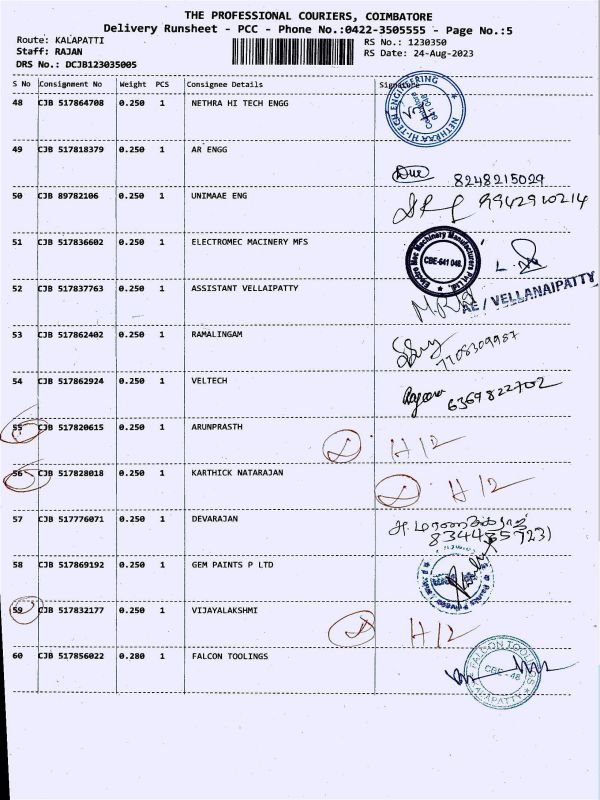 THE PROFESSIONAL COURIERS, COIMBATORE
Delivery Runsheet - PCC - Phone No.:0422-3505555 - Page No.:5
Route: KALAPATTI
RS No.: 1230350
Staff: RAJAN
RS Date: 24-Aug-2023
DRS No.: DCJB123035005
S No Consignment No Weight PCS Consignee Details Signature
48 CJB 517864708 0.250 1 NETHRA HI TECH ENGG
NETHRAA HI-TECH ENGINEERING
49 CJB 517818379 0.250 1 AR ENGG
8248215029
50 CJB 89782106 0.250 1 UNIMAAE ENG
9942910214
51 CJB 517836602 0.250 1 ELECTROMEC MACINERY MFS
Electro Mec Machinery Manufacturers Pvt Ltd.
CBE-641 048.
52 CJB 517837763 0.250 1 ASSISTANT VELLAIPATTY
AE / VELLANAIPATTY
53 CJB 517862402 0.250 1 RAMALINGAM
7708309987
54 CJB 517862924 0.250 1 VELTECH
6369822702
55 CJB 517820615 0.250 1 ARUNPRASTH
H/2
56 CJB 517828018 0.250 1 KARTHICK NATARAJAN
H/2
57 CJB 517776071 0.250 1 DEVARAJAN
58 CJB 517869192 0.250 1 GEM PAINTS P LTD
59 CJB 517832177 0.250 1 VIJAYALAKSHMI
H/2
60 CJB 517856022 0.280 1 FALCON TOOLINGS
FALCON TOOLINGS
CBE - 48
KALAPATTY